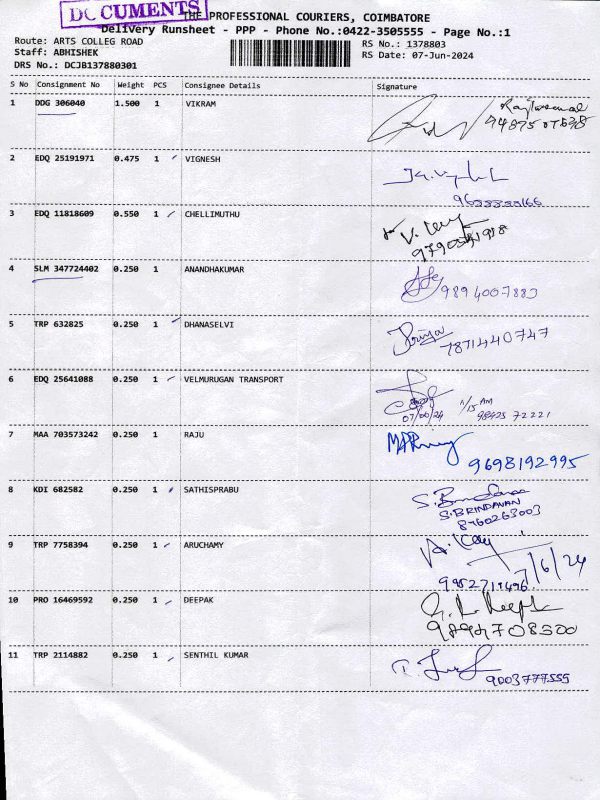 DOCUMENTS
THE PROFESSIONAL COURIERS, COIMBATORE
Delivery Runsheet - PPP - Phone No.:0422-3505555 - Page No.:1
Route: ARTS COLLEG ROAD RS No.: 1378803
Staff: ABHISHEK RS Date: 07-Jun-2024
DRS No.: DCJB137880301
S No Consignment No Weight PCS Consignee Details Signature
1 DDG 306040 1.500 1 VIKRAM
2 EDQ 25191971 0.475 1 VIGNESH
3 EDQ 11818609 0.550 1 CHELLIMUTHU
4 SLM 347724402 0.250 1 ANANDHAKUMAR
9894007883
5 TRP 632825 0.250 1 DHANASELVI
Priya
7871440747
6 EDQ 25641088 0.250 1 VELMURUGAN TRANSPORT
98425 72221
7 MAA 703573242 0.250 1 RAJU
9698192995
8 KDI 682582 0.250 1 SATHISPRABU
S.BRINDAVAN
8760263003
9 TRP 7758394 0.250 1 ARUCHAMY
7/6/24
10 PRO 16469592 0.250 1 DEEPAK
11 TRP 2114882 0.250 1 SENTHIL KUMAR
9003777555